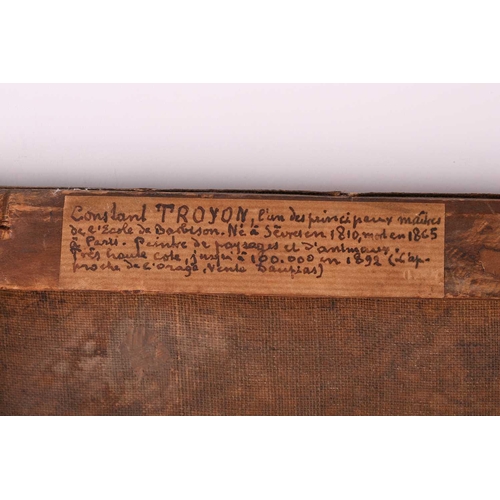 Constant TROYON, l'un des principaux maîtres
de l'Ecole de Barbison. Né à Sèvres en 1810, mort en 1865
à Paris. Peintre de paysages et d'animaux.
Très haute cote, jusqu'à 100.000 en 1892 (L'ap-
proche de l'orage, vente Dauplas)